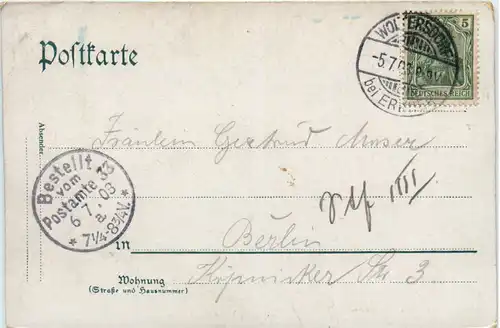 Postkarte
WOLTERSDORF
-5.7.03.
bei ER
5
DEUTSCHES REICH
Absender
Fräulein Gertrud Moser
Bestellt
vom
Postamte 33
6 7. 03
a.
* 7¼-8¾V. *
IIII
in Berlin
Wohnung Köpnicker Str 3
(Straße und Hausnummer)